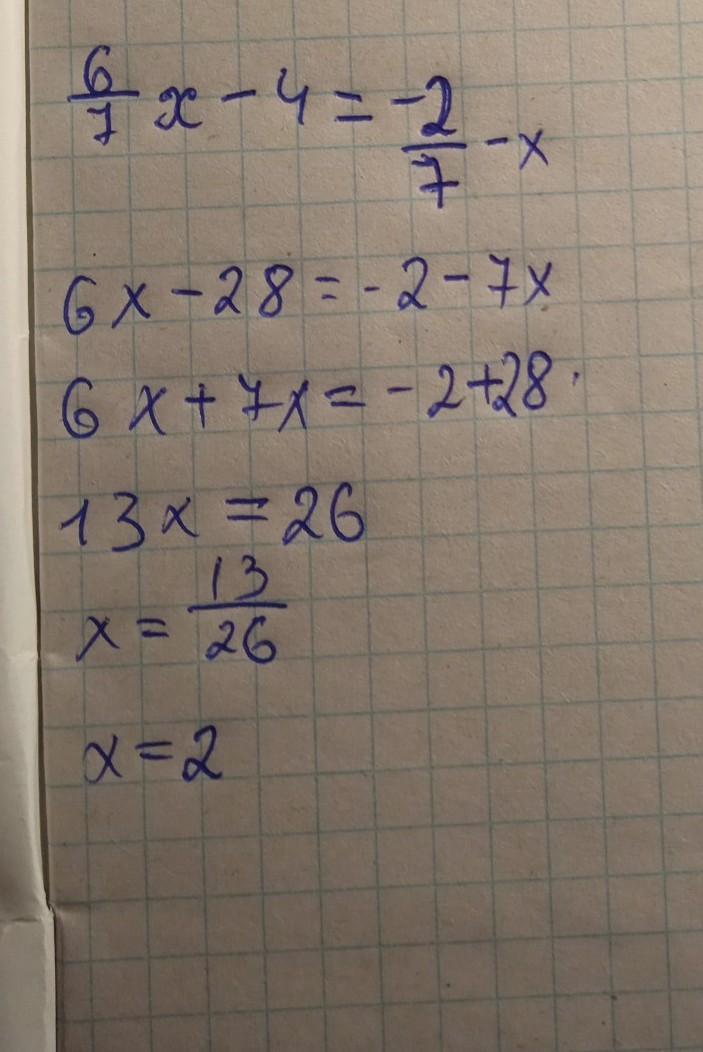 6/7 x - 4 = -2/7 - x
6x - 28 = -2 - 7x
6x + 7x = -2 + 28
13x = 26
x = 13/26
x = 2